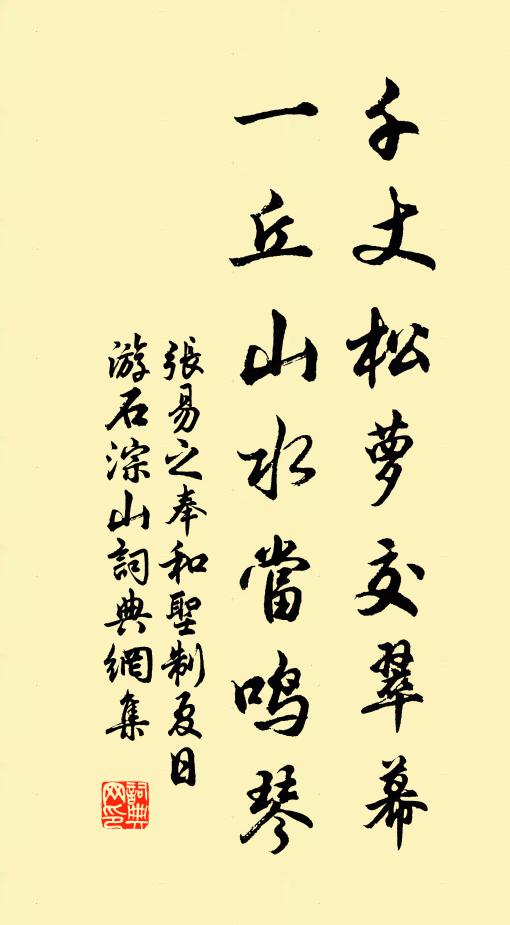 千丈松萝交翠幕
一丘山水當鸣琴
張易之奉和聖制夏日
游石淙山詞典網集
詞典网印